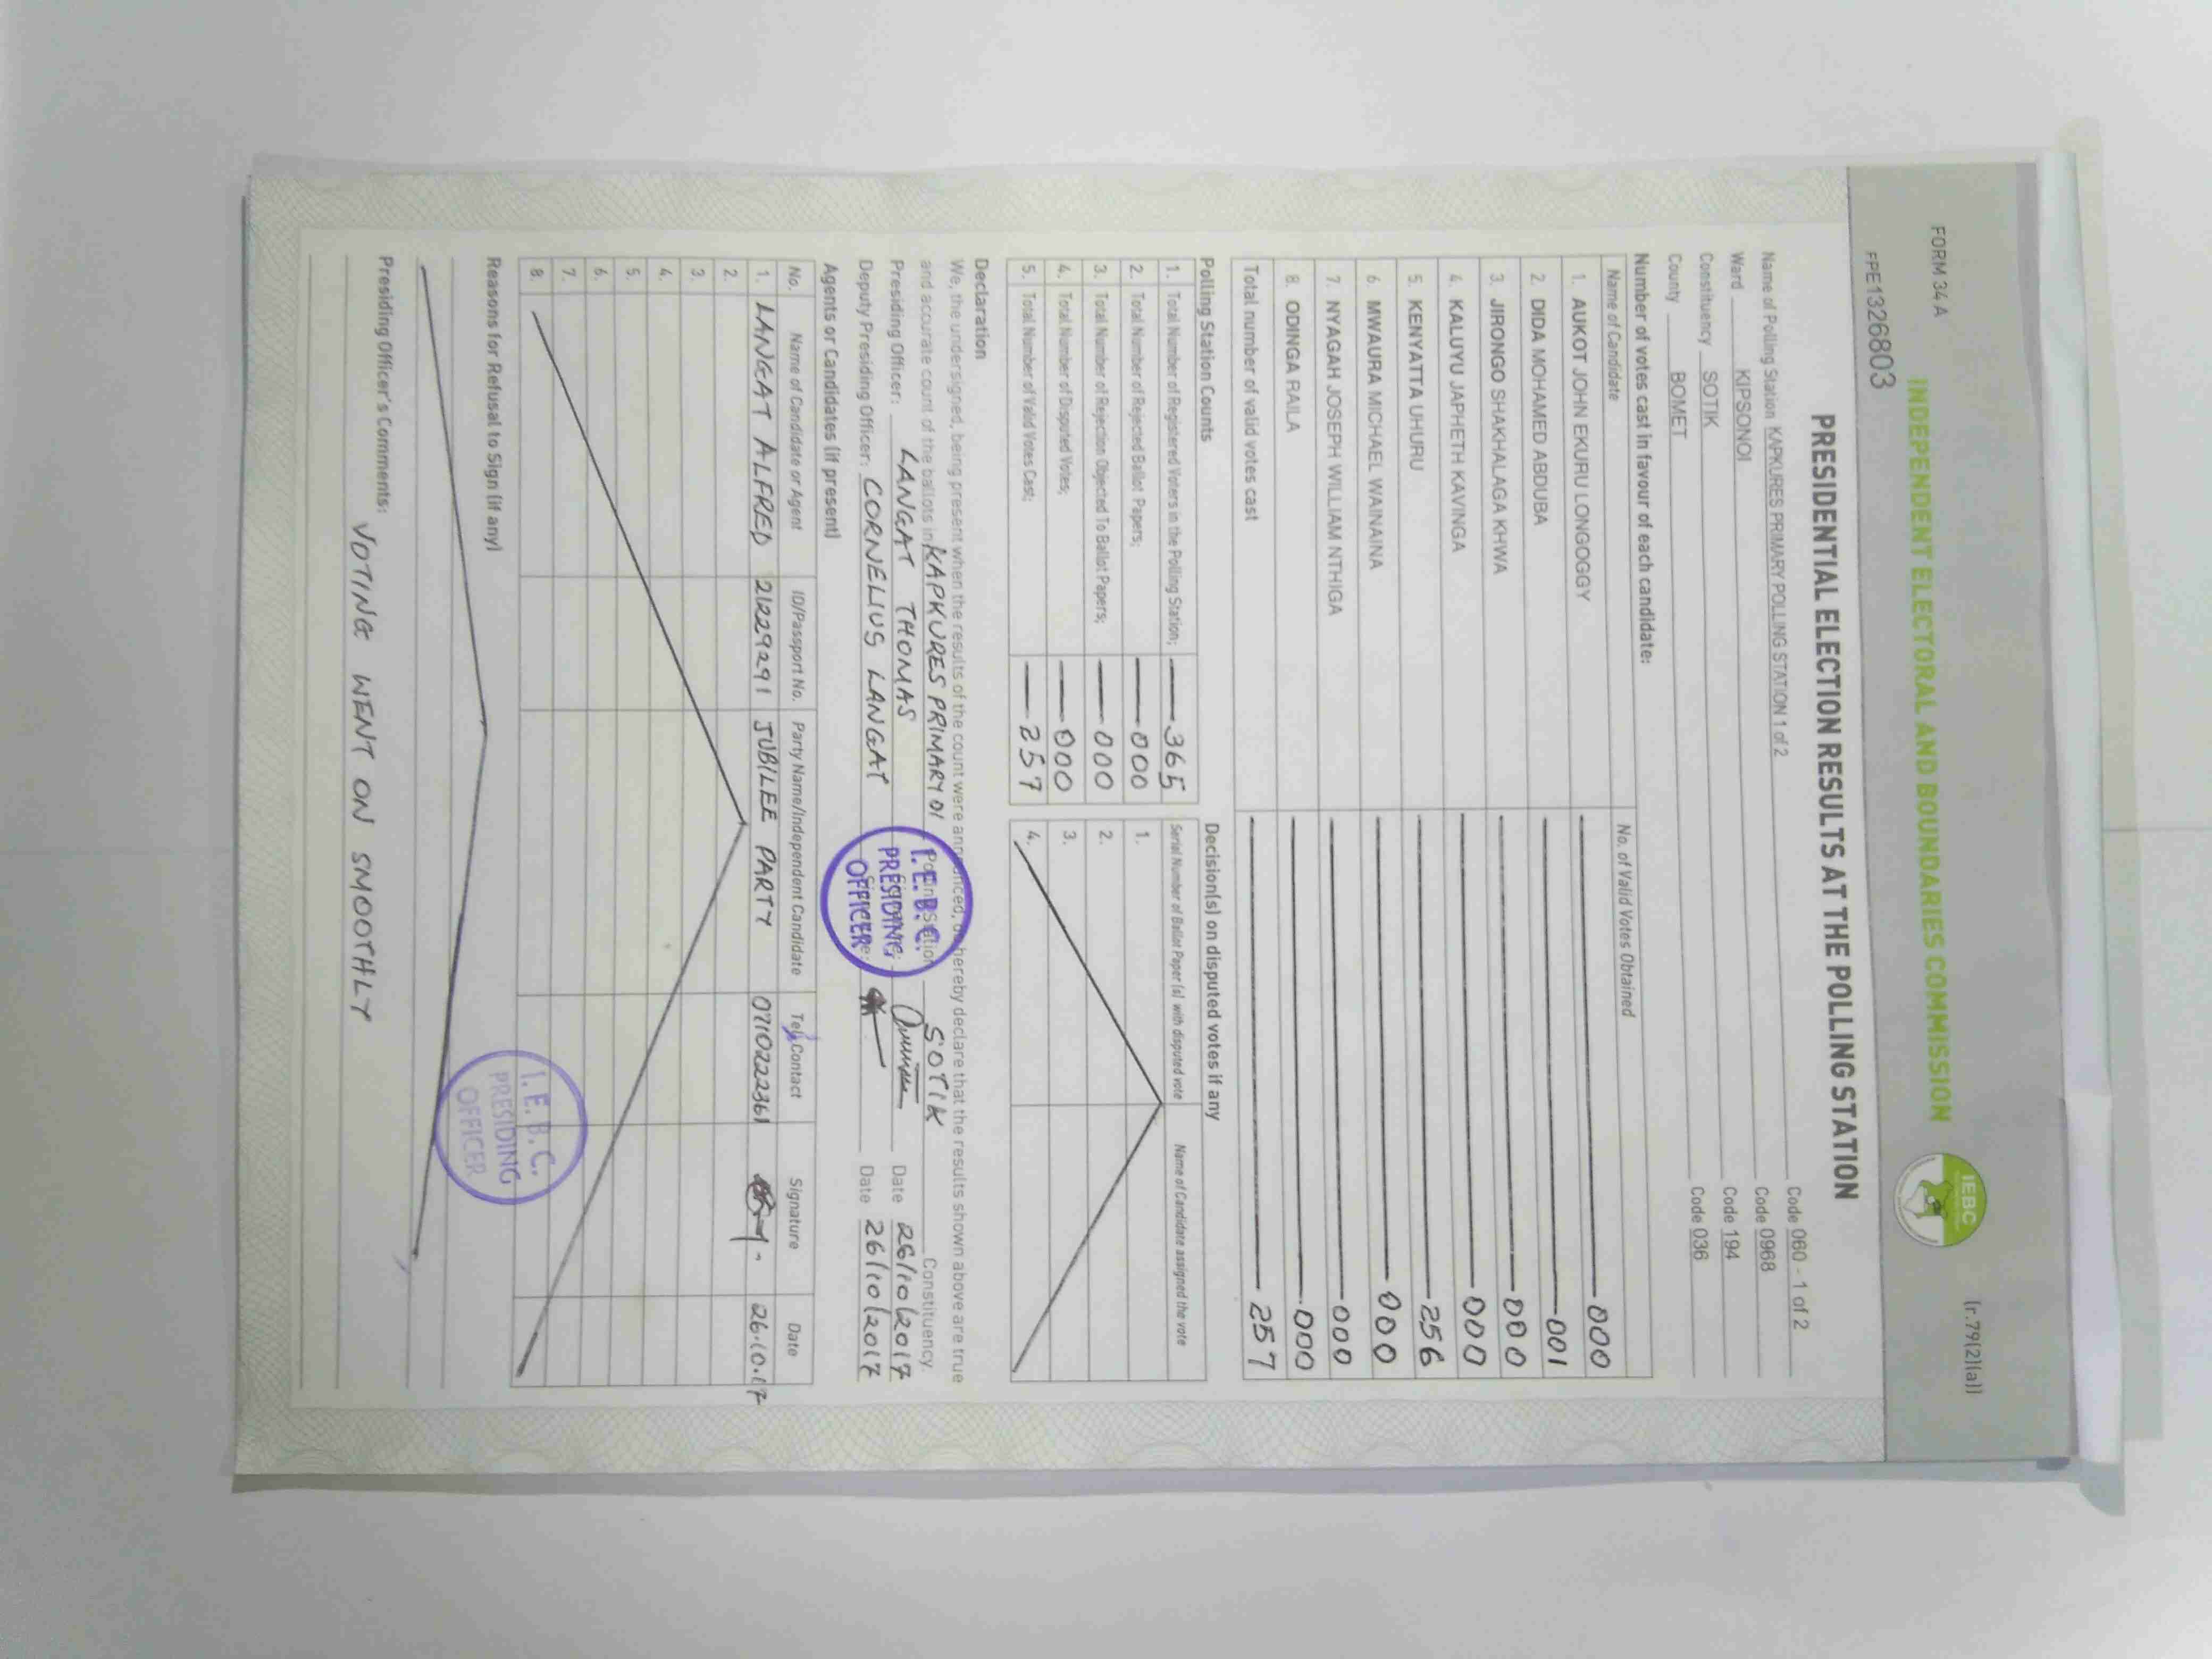 FORM 34 A
[r.79(2)(a)]
INDEPENDENT ELECTORAL AND BOUNDARIES COMMISSION
IEBC
FPE1326803
PRESIDENTIAL ELECTION RESULTS AT THE POLLING STATION
Name of Polling Station KAPKURES PRIMARY POLLING STATION 1 of 2 Code 060 - 1 of 2
Ward KIPSONOI Code 0968
Constituency SOTIK Code 194
County BOMET Code 036
Number of votes cast in favour of each candidate:
Name of Candidate No. of Valid Votes Obtained
1. AUKOT JOHN EKURU LONGOGGY 000
2. DIDA MOHAMED ABDUBA 001
3. JIRONGO SHAKHALAGA KHWA 000
4. KALUYU JAPHETH KAVINGA 000
5. KENYATTA UHURU 256
6 MWAURA MICHAEL WAINAINA 000
7. NYAGAH JOSEPH WILLIAM NTHIGA 000
8. ODINGA RAILA 000
Total number of valid votes cast 257
Polling Station Counts
1. Total Number of Registered Voters in the Polling Station; 365
2. Total Number of Rejected Ballot Papers; 000
3. Total Number of Rejection Objected To Ballot Papers; 000
4. Total Number of Disputed Votes; 000
5. Total Number of Valid Votes Cast; 257
Decision(s) on disputed votes if any
Serial Number of Ballot Paper (s) with disputed vote Name of Candidate assigned the vote
1.
2.
3.
4.
Declaration
We, the undersigned, being present when the results of the count were announced, do hereby declare that the results shown above are true
and accurate count of the ballots in KAPKURES PRIMARY 01 Polling Station SOTIK Constituency.
Presiding Officer: LANGAT THOMAS Signature: Date 26/10/2017
Deputy Presiding Officer: CORNELIUS LANGAT Signature: Date 26/10/2017
I.E.B.C.
PRESIDING
OFFICER
Agents or Candidates (if present)
No. Name of Candidate or Agent ID/Passport No. Party Name/Independent Candidate Tel. Contact Signature Date
1. LANGAT ALFRED 21229291 JUBILEE PARTY 0710222361 26.10.17
2.
3.
4.
5.
6.
7.
8.
I.E.B.C.
PRESIDING
OFFICER
Reasons for Refusal to Sign (if any)
Presiding Officer's Comments:
VOTING WENT ON SMOOTHLY